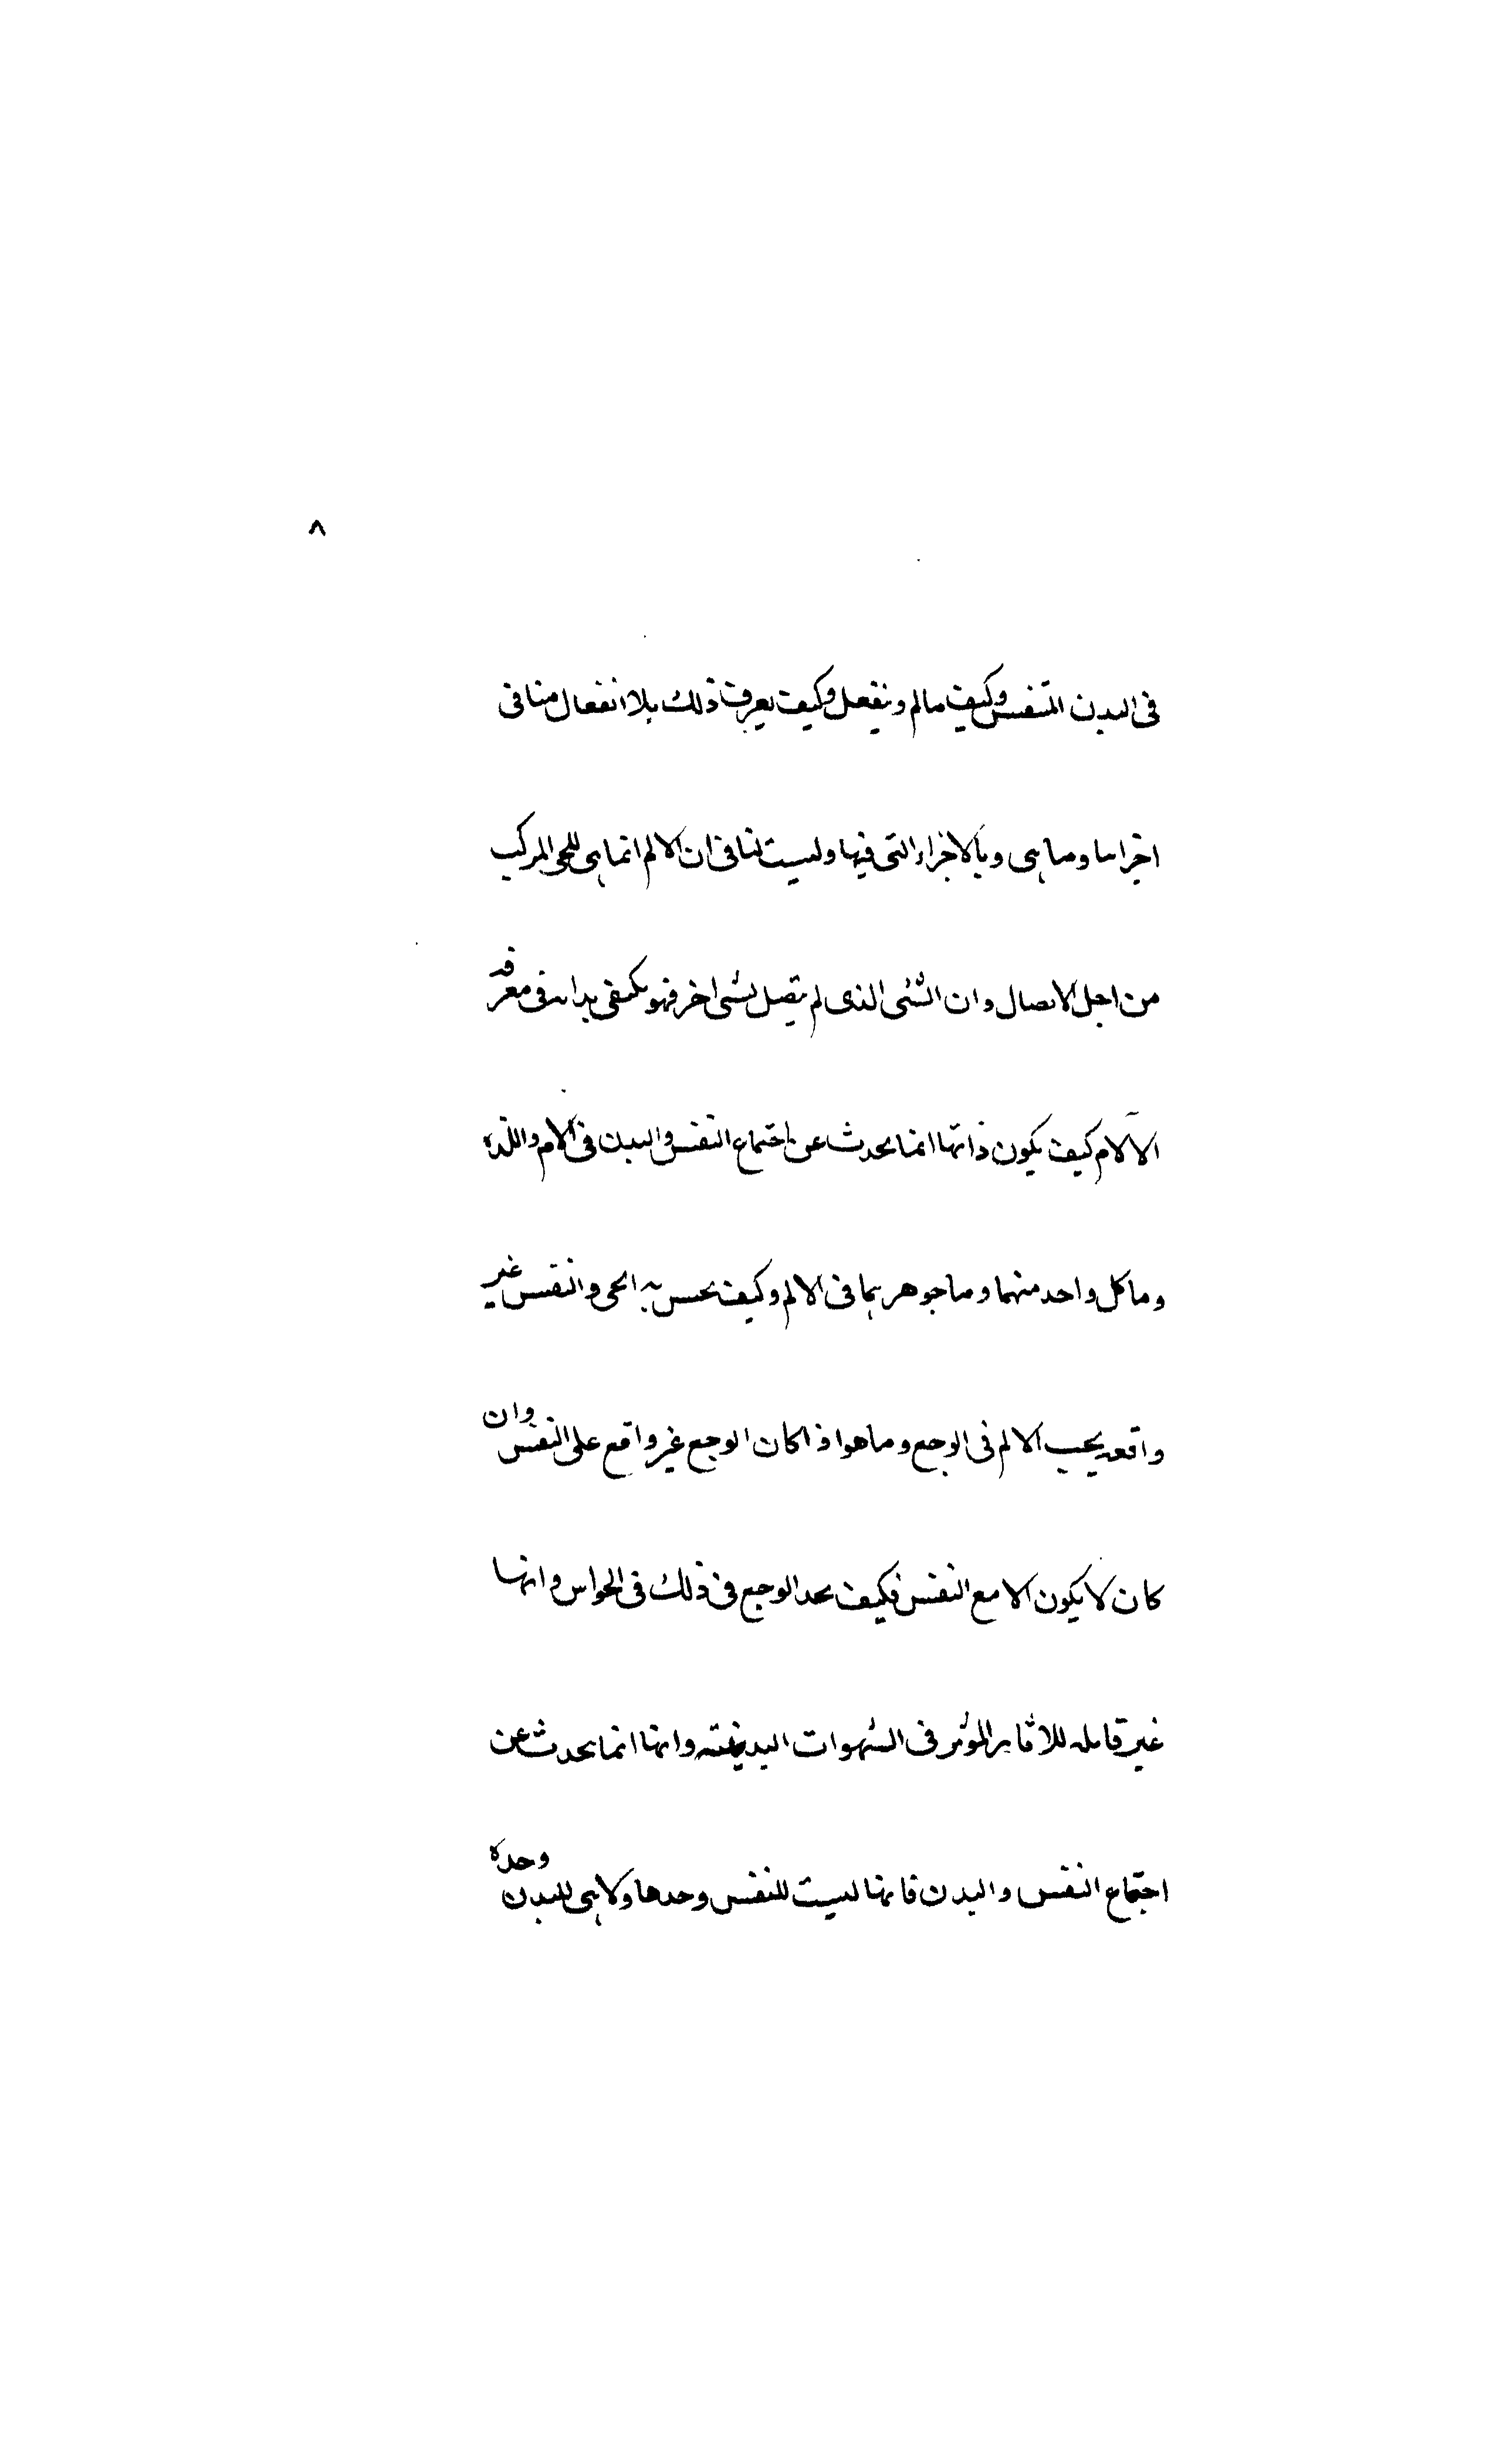 ٨
فى البدن المتنفس وكيف مالم وينفعل وكيف يعرف ذلك بلا انفعال منا فى
اخراسا وما هى وبالاخراء التى فيها وليست لنا فى ان الالم انما هى للحى المركب
من اجل الاتصال وان الشئى الذى لم يتصل بشى اخر فهو مكتفى بذاته فى معرفة
الآلام كيف يكون ذاتها انما يحدث عن اجتماع النفس والبدن فى آلام واللذه
وما كل واحد منهما وما جوهر بما فى الالم وكيف يحس به الحى والنفس غير
واقعه يجب الالم فى الوجع وما هو اذا كان الوجع غير واقع على النفس وان
كان لا يكون الا مع النفس فكيف يجد الوجع فى ذلك فى الحواس وانها
غير قابله للاثار المؤثر فى الشهوات البدنيته وانها انما يحدث عن
اجتماع النفس والبدن فانها ليست للنفس وحدها ولا هى للبدن وحده